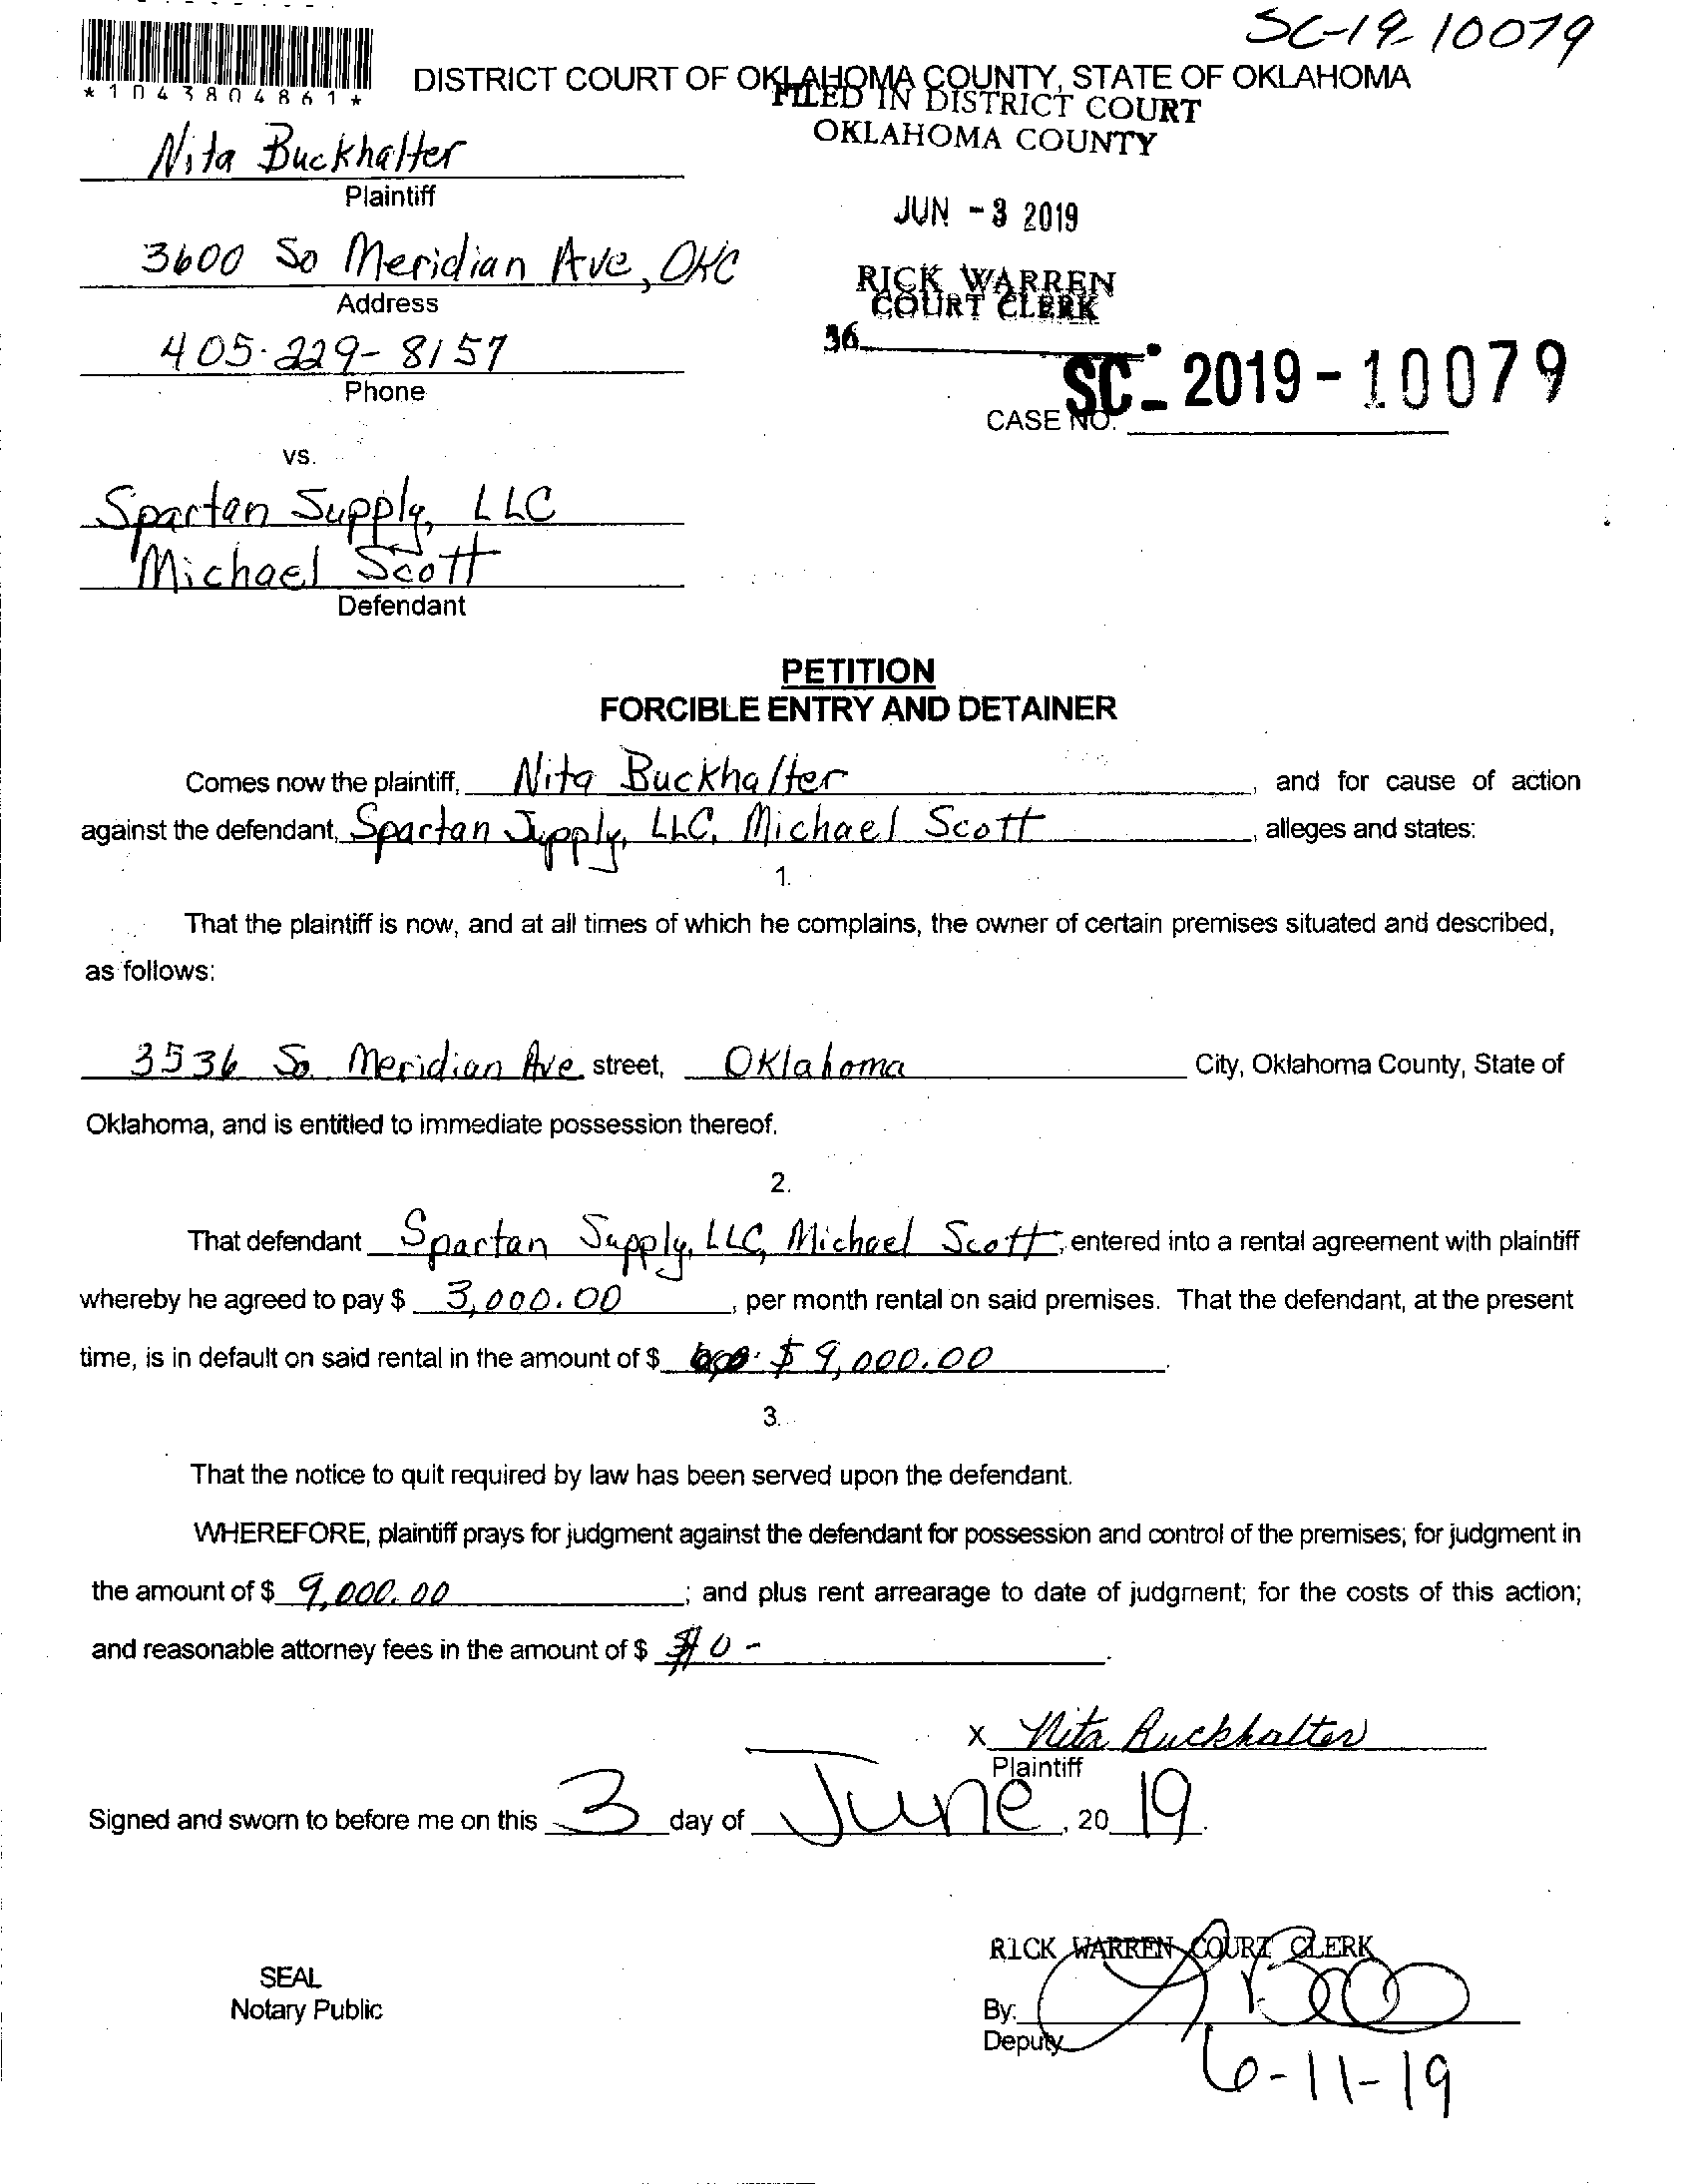 SC-19-10079
*1043804861*
DISTRICT COURT OF OKLAHOMA COUNTY, STATE OF OKLAHOMA
FILED IN DISTRICT COURT
OKLAHOMA COUNTY
Nita Buckhalter
Plaintiff
JUN -3 2019
3600 So Meridian Ave, OKC
Address
RICK WARREN
COURT CLERK
405-229-8157
Phone
36
SC- 2019-10079
CASE NO.
vs.
Spartan Supply, LLC
Michael Scott
Defendant
PETITION
FORCIBLE ENTRY AND DETAINER
Comes now the plaintiff, Nita Buckhalter, and for cause of action
against the defendant, Spartan Supply, LLC, Michael Scott, alleges and states:
1.
That the plaintiff is now, and at all times of which he complains, the owner of certain premises situated and described,
as follows:
3536 So. Meridian Ave street, Oklahoma City, Oklahoma County, State of
Oklahoma, and is entitled to immediate possession thereof.
2.
That defendant Spartan Supply, LLC, Michael Scott, entered into a rental agreement with plaintiff
whereby he agreed to pay $ 3,000.00, per month rental on said premises. That the defendant, at the present
time, is in default on said rental in the amount of $ $ 9,000.00.
3.
That the notice to quit required by law has been served upon the defendant.
WHEREFORE, plaintiff prays for judgment against the defendant for possession and control of the premises; for judgment in
the amount of $ 9,000.00; and plus rent arrearage to date of judgment; for the costs of this action;
and reasonable attorney fees in the amount of $ 0 -.
X Nita Buckhalter
Plaintiff
Signed and sworn to before me on this 3 day of June, 20 19.
RICK WARREN COURT CLERK
SEAL
Notary Public
By:
Deputy
6-11-19